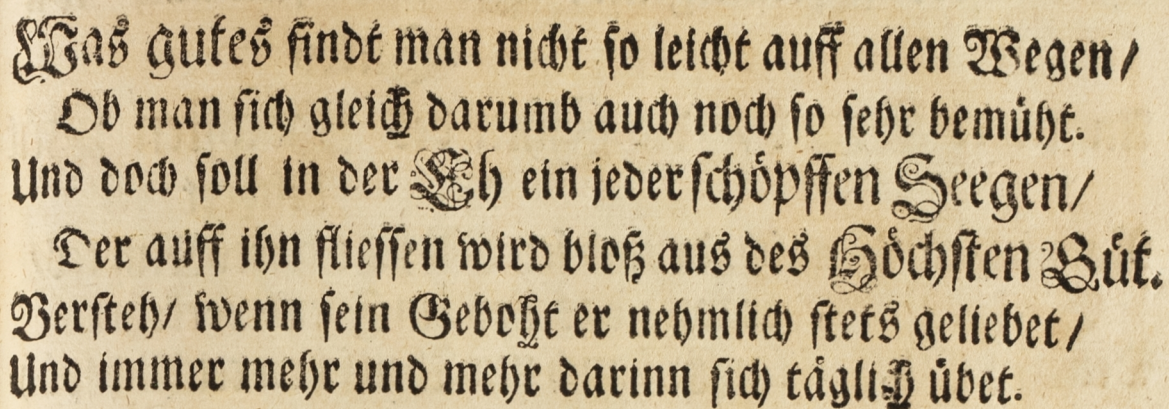 Was gutes findt man nicht so leicht auff allen Wegen/
Ob man sich gleich darumb auch noch so sehr bemüht.
Und doch soll in der Eh ein jeder schöpffen Seegen/
Der auff ihn fliessen wird bloß aus des Höchsten Güt.
Versteh/ wenn sein Geboht er nehmlich stets geliebet/
Und immer mehr und mehr darinn sich täglich übet.